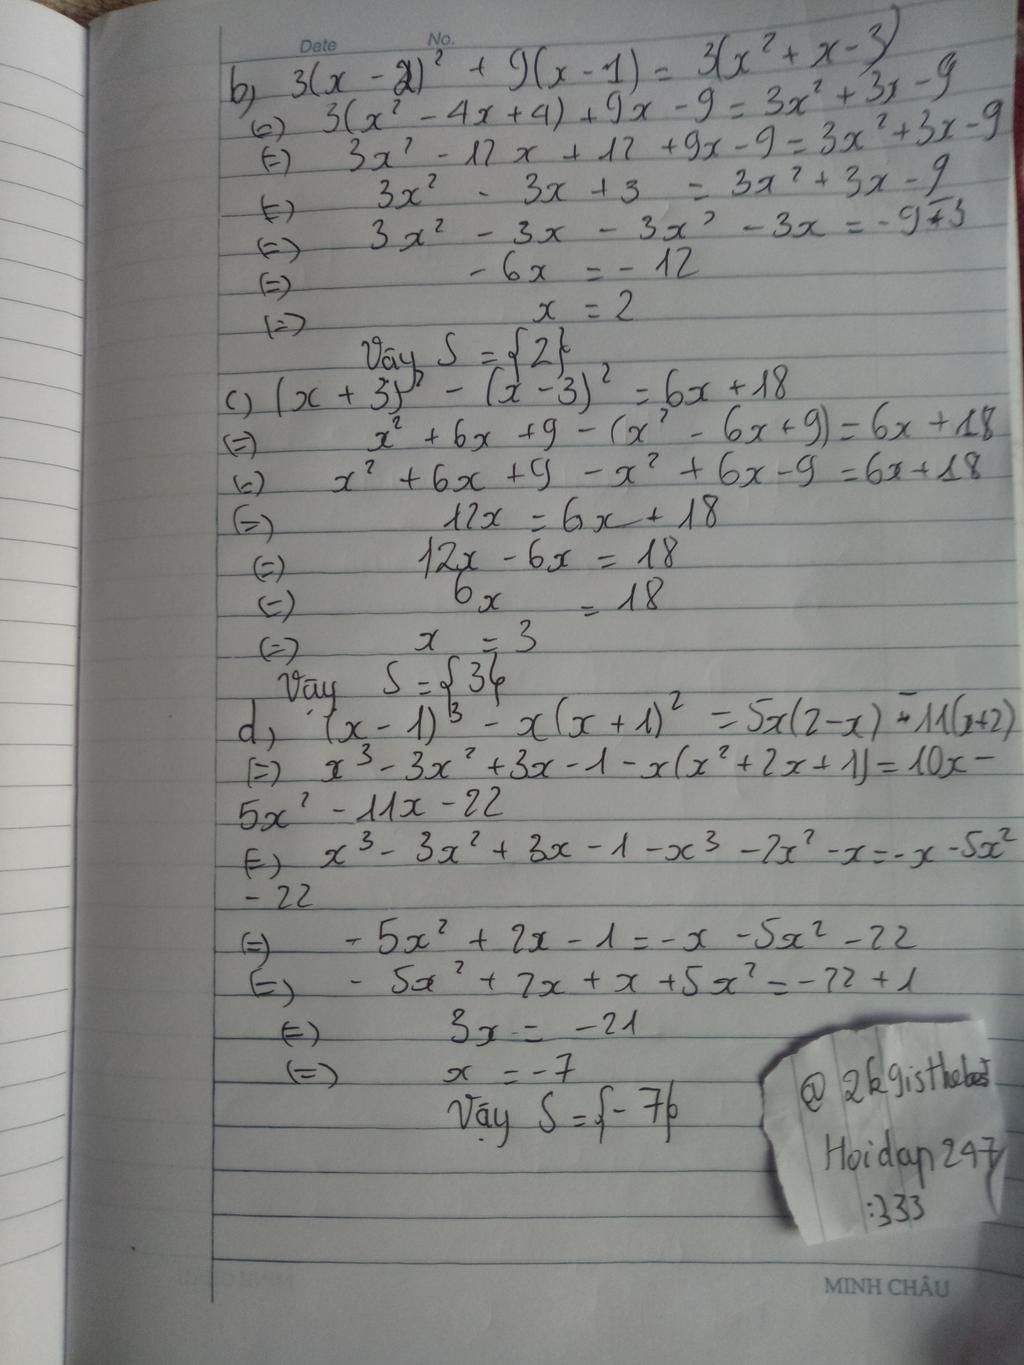 Date No.
b, 3(x - 2)² + 9(x - 1) = 3(x² + x - 3)
(=) 3(x² - 4x + 4) + 9x - 9 = 3x² + 3x - 9
(=) 3x² - 12x + 12 + 9x - 9 = 3x² + 3x - 9
(=) 3x² - 3x + 3 = 3x² + 3x - 9
(=) 3x² - 3x - 3x² - 3x = - 9 - 3
(=) - 6x = - 12
(=) x = 2
Vậy S = {2}
c) (x + 3)² - (x - 3)² = 6x + 18
(=) x² + 6x + 9 - (x² - 6x + 9) = 6x + 18
(=) x² + 6x + 9 - x² + 6x - 9 = 6x + 18
(=) 12x = 6x + 18
(=) 12x - 6x = 18
(=) 6x = 18
(=) x = 3
Vậy S = {3}
d, (x - 1)³ - x(x + 1)² = 5x(2 - x) - 11(x + 2)
(=) x³ - 3x² + 3x - 1 - x(x² + 2x + 1) = 10x -
5x² - 11x - 22
(=) x³ - 3x² + 3x - 1 - x³ - 2x² - x = - x - 5x²
- 22
(=) - 5x² + 2x - 1 = - x - 5x² - 22
(=) - 5x² + 2x + x + 5x² = - 22 + 1
(=) 3x = - 21
(=) x = - 7
Vậy S = {- 7}
@ 2k9isthebest
Hoidap247
:333
MINH CHÂU